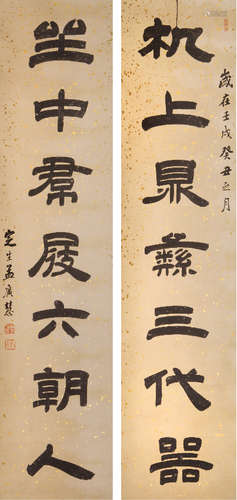 歲在壬戌癸丑之月
机上鼎彝三代器
坐中帬屐六朝人
定生孟廣慧